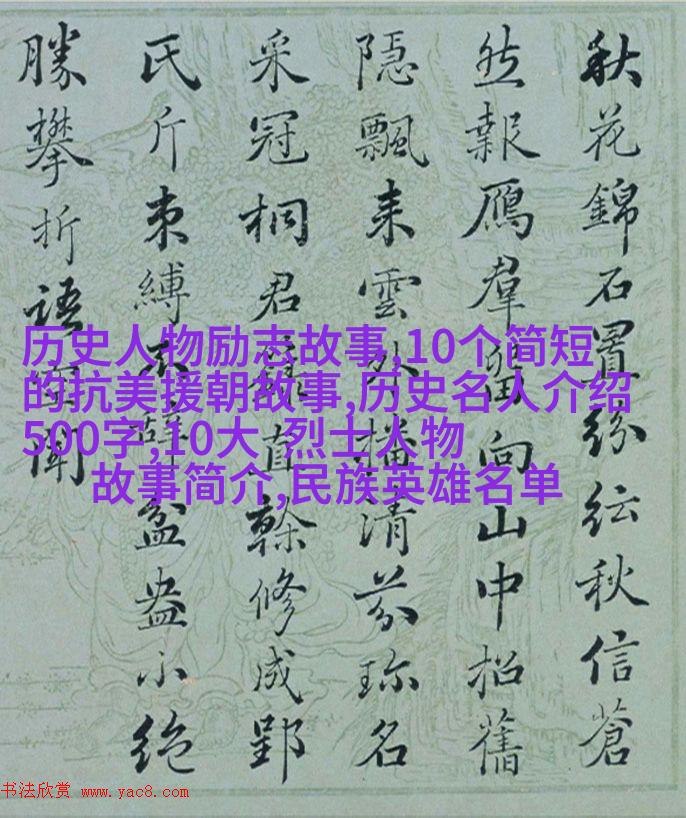 秋花錦石紛紜秋信蒼
然報鴈羣留向山中招舊
隱飄来雲外播清芬珎名
采冠桐君録直榦修成郢
氏斤束縛不辭盆盎小绝
勝攀折語聞
历史人物励志故事,10个简短
的抗美援朝故事,历史名人介绍
500字,10大 烈士人物
故事简介,民族英雄名单
书法欣赏 www.yac8.com